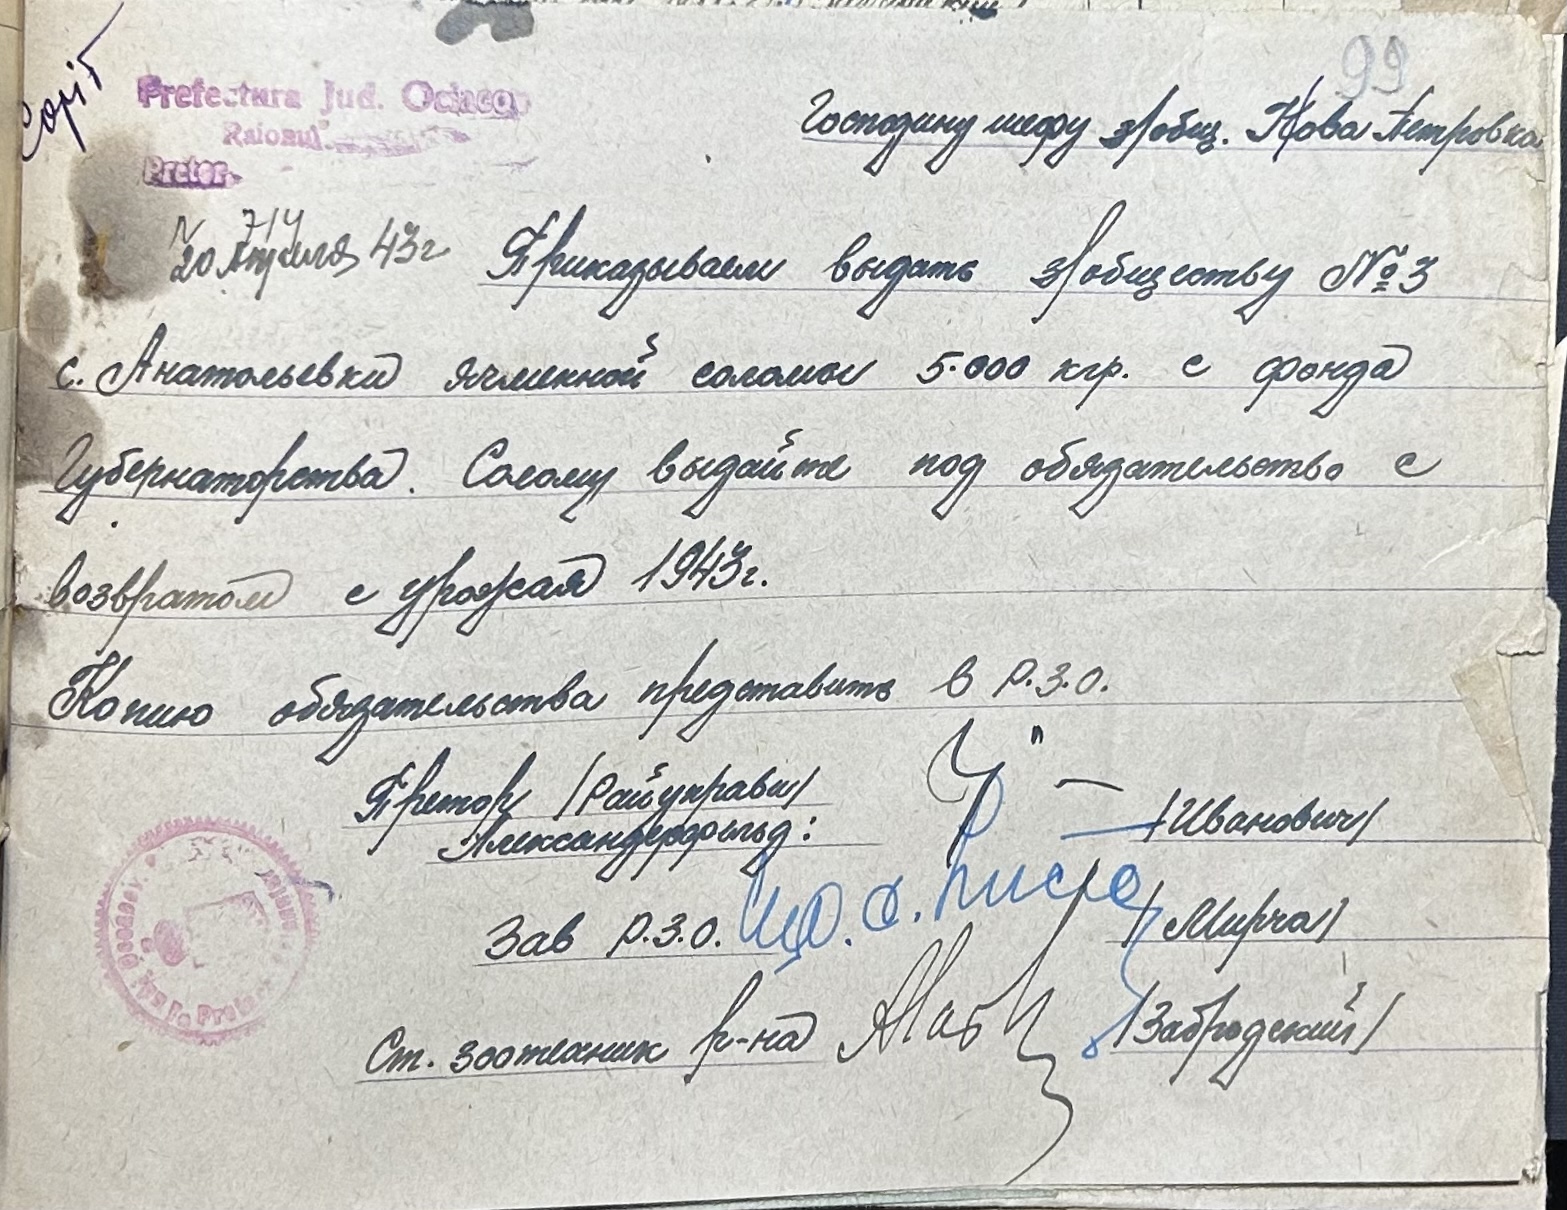 99
Copit
Prefectura Jud. Oceacov
Raionul
Pretor
Господину шефу з/общ. Нова Петровка
N 714
20 Апреля 43г
Приказываем выдать з/обществу №3
с. Анатольевка ячменной соломы 5.000 кгр. с фонда
Губернаторства. Солому выдайте под обязательство с
возвратом с урожая 1943г.
Копию обязательства представить в Р.З.О.
Претор /Райуправы/
Александерфельд: /Иванович/
Зав Р.З.О. /Мирча/
Ст. зоотехник р-на /Забродский/